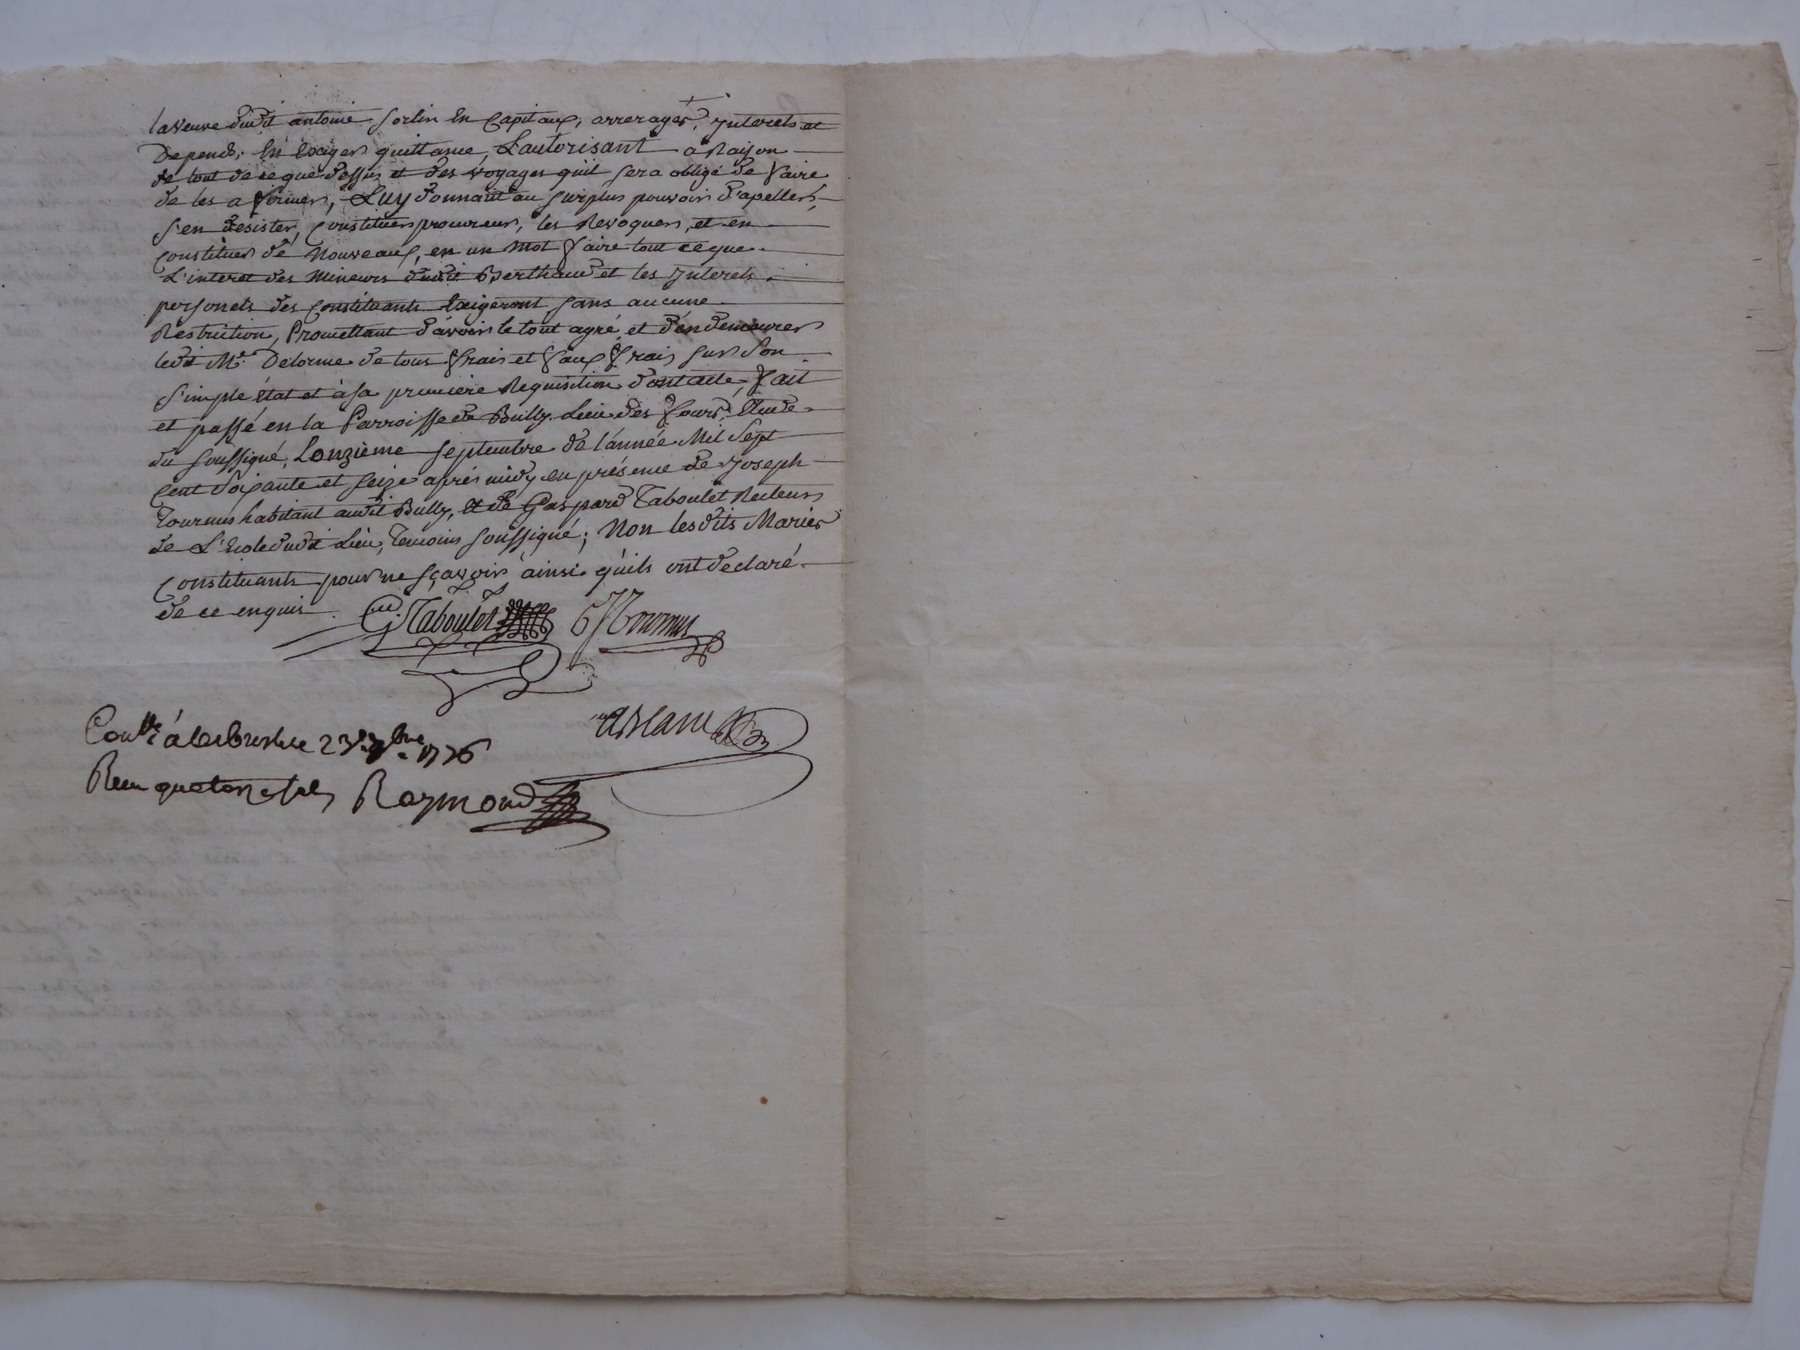 la veuve dudit antoine Sorlin en Capitaux, arrerages, Interets et
Depends, En Exiger quittance, L'autorisant a Raison
de tout de ce que dessus et des voyages qu'il sera obligé de faire
de les a firmer, Luy donnant au surplus pouvoir d'apeller,
s'en desister, Constituer procureur, les Revoquer, et en
Constituer de Nouveaux, en un mot faire tout ce que
L'interet des Mineurs dudit Berthaud et les Interets
personels des Constituants Exigeront sans aucune
Restriction, Promettant d'avoir le tout agré et d'en demeurer
ledit Me. Delorme de tous frais et faux frais sur Son
Simple état et à sa premiere Requisition dont acte, fait
et passé en la Parroisse de Bully Lieu des fours Etude
du soussigné, L'onzième Septembre de l'année Mil Sept
Cent Soixante et seize après midy en présence de Joseph
Tournus habitant audit Bully, et de Gaspard Taboulet Recteur
de L'Ecole dudit Lieu, Temoins soussigné; Non lesdits Mariés
Constituants pour ne sçavoir ainsi qu'ils ont declaré
de ce enquis
G. Taboulet J Tournus
Conllé à 23 7bre 1776
Recu quatorze sols Raymond